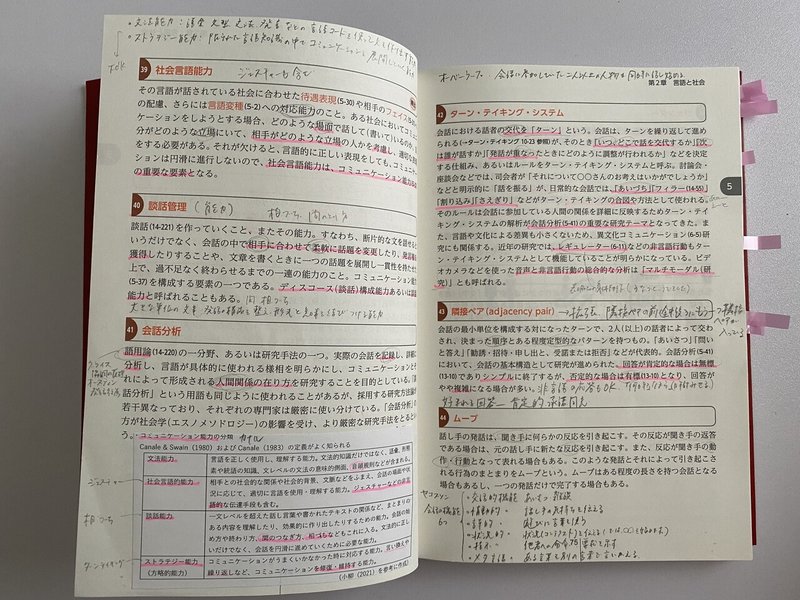 ・文法能力：語彙、文型、文法、発音などの言語コードを使って
・ストラテジー能力：限られた言語知識の中でコミュニケーションを
39 社会言語能力
ジェスチャーも含む
その言語が話されている社会に合わせた待遇表現(5-30)や相手のフェイス
の配慮、さらには言語変種(5-2)への対応能力のこと。ある社会においてコミュニ
ケーションをしようとする場合、どのような場面で話して(書いている)
分がどのような立場にいて、相手がどのような立場の人かを考慮し、適切な
する必要がある。それが欠けると、言語的に正しい表現をしても、コミュニケー
ションは円滑に進行しないので、社会言語能力は、コミュニケーション能力の
の重要な要素となる。
40 談話管理
(能力) 相づち、間のとり方
談話(14-221)を作っていくこと、またその能力。すなわち、断片的な文を話せる
いうだけでなく、会話の中で相手に合わせて柔軟に話題を変更したり、発話
獲得したりすることや、文章を書くときに一つの話題を展開し一貫性を持たせ
上で、過不足なく終わらせるまでの一連の能力のこと。コミュニケーション能力
(5-37)を構成する要素の一つである。ディスコース(談話)構成能力あるいは談話
能力と呼ばれることもある。
間、相づち
41 会話分析
語用論(14-220)の一分野、あるいは研究手法の一つ。実際の会話を記録し、詳細に
分析し、言語が具体的に使われる様相を明らかにし、コミュニケーション
れによって形成される人間関係の在り方を研究することを目的としている。「
話分析」という用語も同じように使われることがあるが、採用する研究方法論
若干異なっており、それぞれの専門家は厳密に使い分けている。「会話分析」の
方が社会学(エスノメソドロジー)の影響を受け、より厳密な研究手法をとる
う。
・コミュニケーション能力の分類
Canale & Swain (1980) および Canale (1983) の定義がよく知られる
文法能力
言語を正しく使用し、理解する能力。文法的知識だけではなく、語彙、形態
素や統語の知識、文レベルの文法の意味的側面、音韻規則などが含まれる。
社会言語的能力
相手との社会的な関係や社会的背景、文脈などをふまえ、会話の場面や状
況に応じて、適切に言語を使用・理解する能力。ジェスチャーなどの非言
語的な伝達手段も含む。
談話能力
一文レベルを超えた話し言葉や書かれたテキストの関係など、まとまりの
ある内容を理解したり、効果的に作り出したりするための能力。会話の始
め方や終わり方、間のつなぎ方、相づちなどもこれに入る。文法的に正し
いだけでなく、会話を円滑に進めていくために必要な能力。
ストラテジー能力
(方略的能力)
コミュニケーションがうまくいかなかった時に対応する能力。言い換えや
繰り返しなど、コミュニケーションを修復・維持する能力。
(小柳 (2021) を参考に作成)
ジェスチャー
相づち
ターンテイキング
オーバーラップ：会話に参加していた二人以上の人物が同時に話し始める
第2章 言語と社会
42 ターン・テイキング・システム
会話における話者の交代を「ターン」という。会話は、ターンを繰り返して進め
られる(→ターン・テイキング 10-23 参照)が、そのとき「いつ/どこで話を交代するか」「次
は誰が話すか」「発話が重なったときにどのように調整が行われるか」などを決定
する仕組み、あるいはルールをターン・テイキング・システムと呼ぶ。討論会・
座談会などでは、司会者が「それについて○○さんのお考えはいかがでしょうか」
などと明示的に「話を振る」が、日常的な会話では、「あいづち」「フィラー(14-55)」
「割り込み」「さえぎり」などがターン・テイキングの合図や方法として使われる。
そのルールは会話に参加している人間の関係を詳細に反映するためターン・テイ
キング・システムの解析が会話分析(5-41)の重要な研究テーマとなってきた。ま
た、言語や文化による差異も小さくないため、異文化コミュニケーション(6-5)研
究にも関係する。近年の研究では、レギュレーター(6-11)などの非言語行動もター
ン・テイキング・システムとして機能していることが明らかになっている。ビデ
オカメラなどを使った音声と非言語行動の総合的な分析は「マルチモーダル(研
究)」とも呼ばれる。
5
43 隣接ペア(adjacency pair)
会話の最小単位を構成する対になったターンで、2人(以上)の話者によって交わ
され、決まった順序とある程度定型的なパターンを持つもの。「あいさつ」「問い
と答え」「勧誘・招待・申し出と、受諾または拒否」などが代表的。会話分析(5-41)
において、会話の基本構造として研究が進められた。回答が肯定的な場合は無標
(13-10)でありシンプルに終了するが、否定的な場合は有標(13-10)となり、回答が
やや複雑になる場合が多い。
好まれる回答＝肯定的、承諾同意
44 ムーブ
話し手の発話は、聞き手に何らかの反応を引き起こす。その反応が聞き手の返答
である場合は、元の話し手に新たな反応を引き起こす。また、反応が聞き手の動
作・行動となって表れる場合もある。このような発話とそれによって引き起こさ
れる行為のまとまりをムーブという。ムーブはある程度の長さを持つ会話となる
場合もあるし、一つの発話だけで完了する場合もある。
ヤコブソン
・交話的機能
・心情的〃
・詩的〃
75